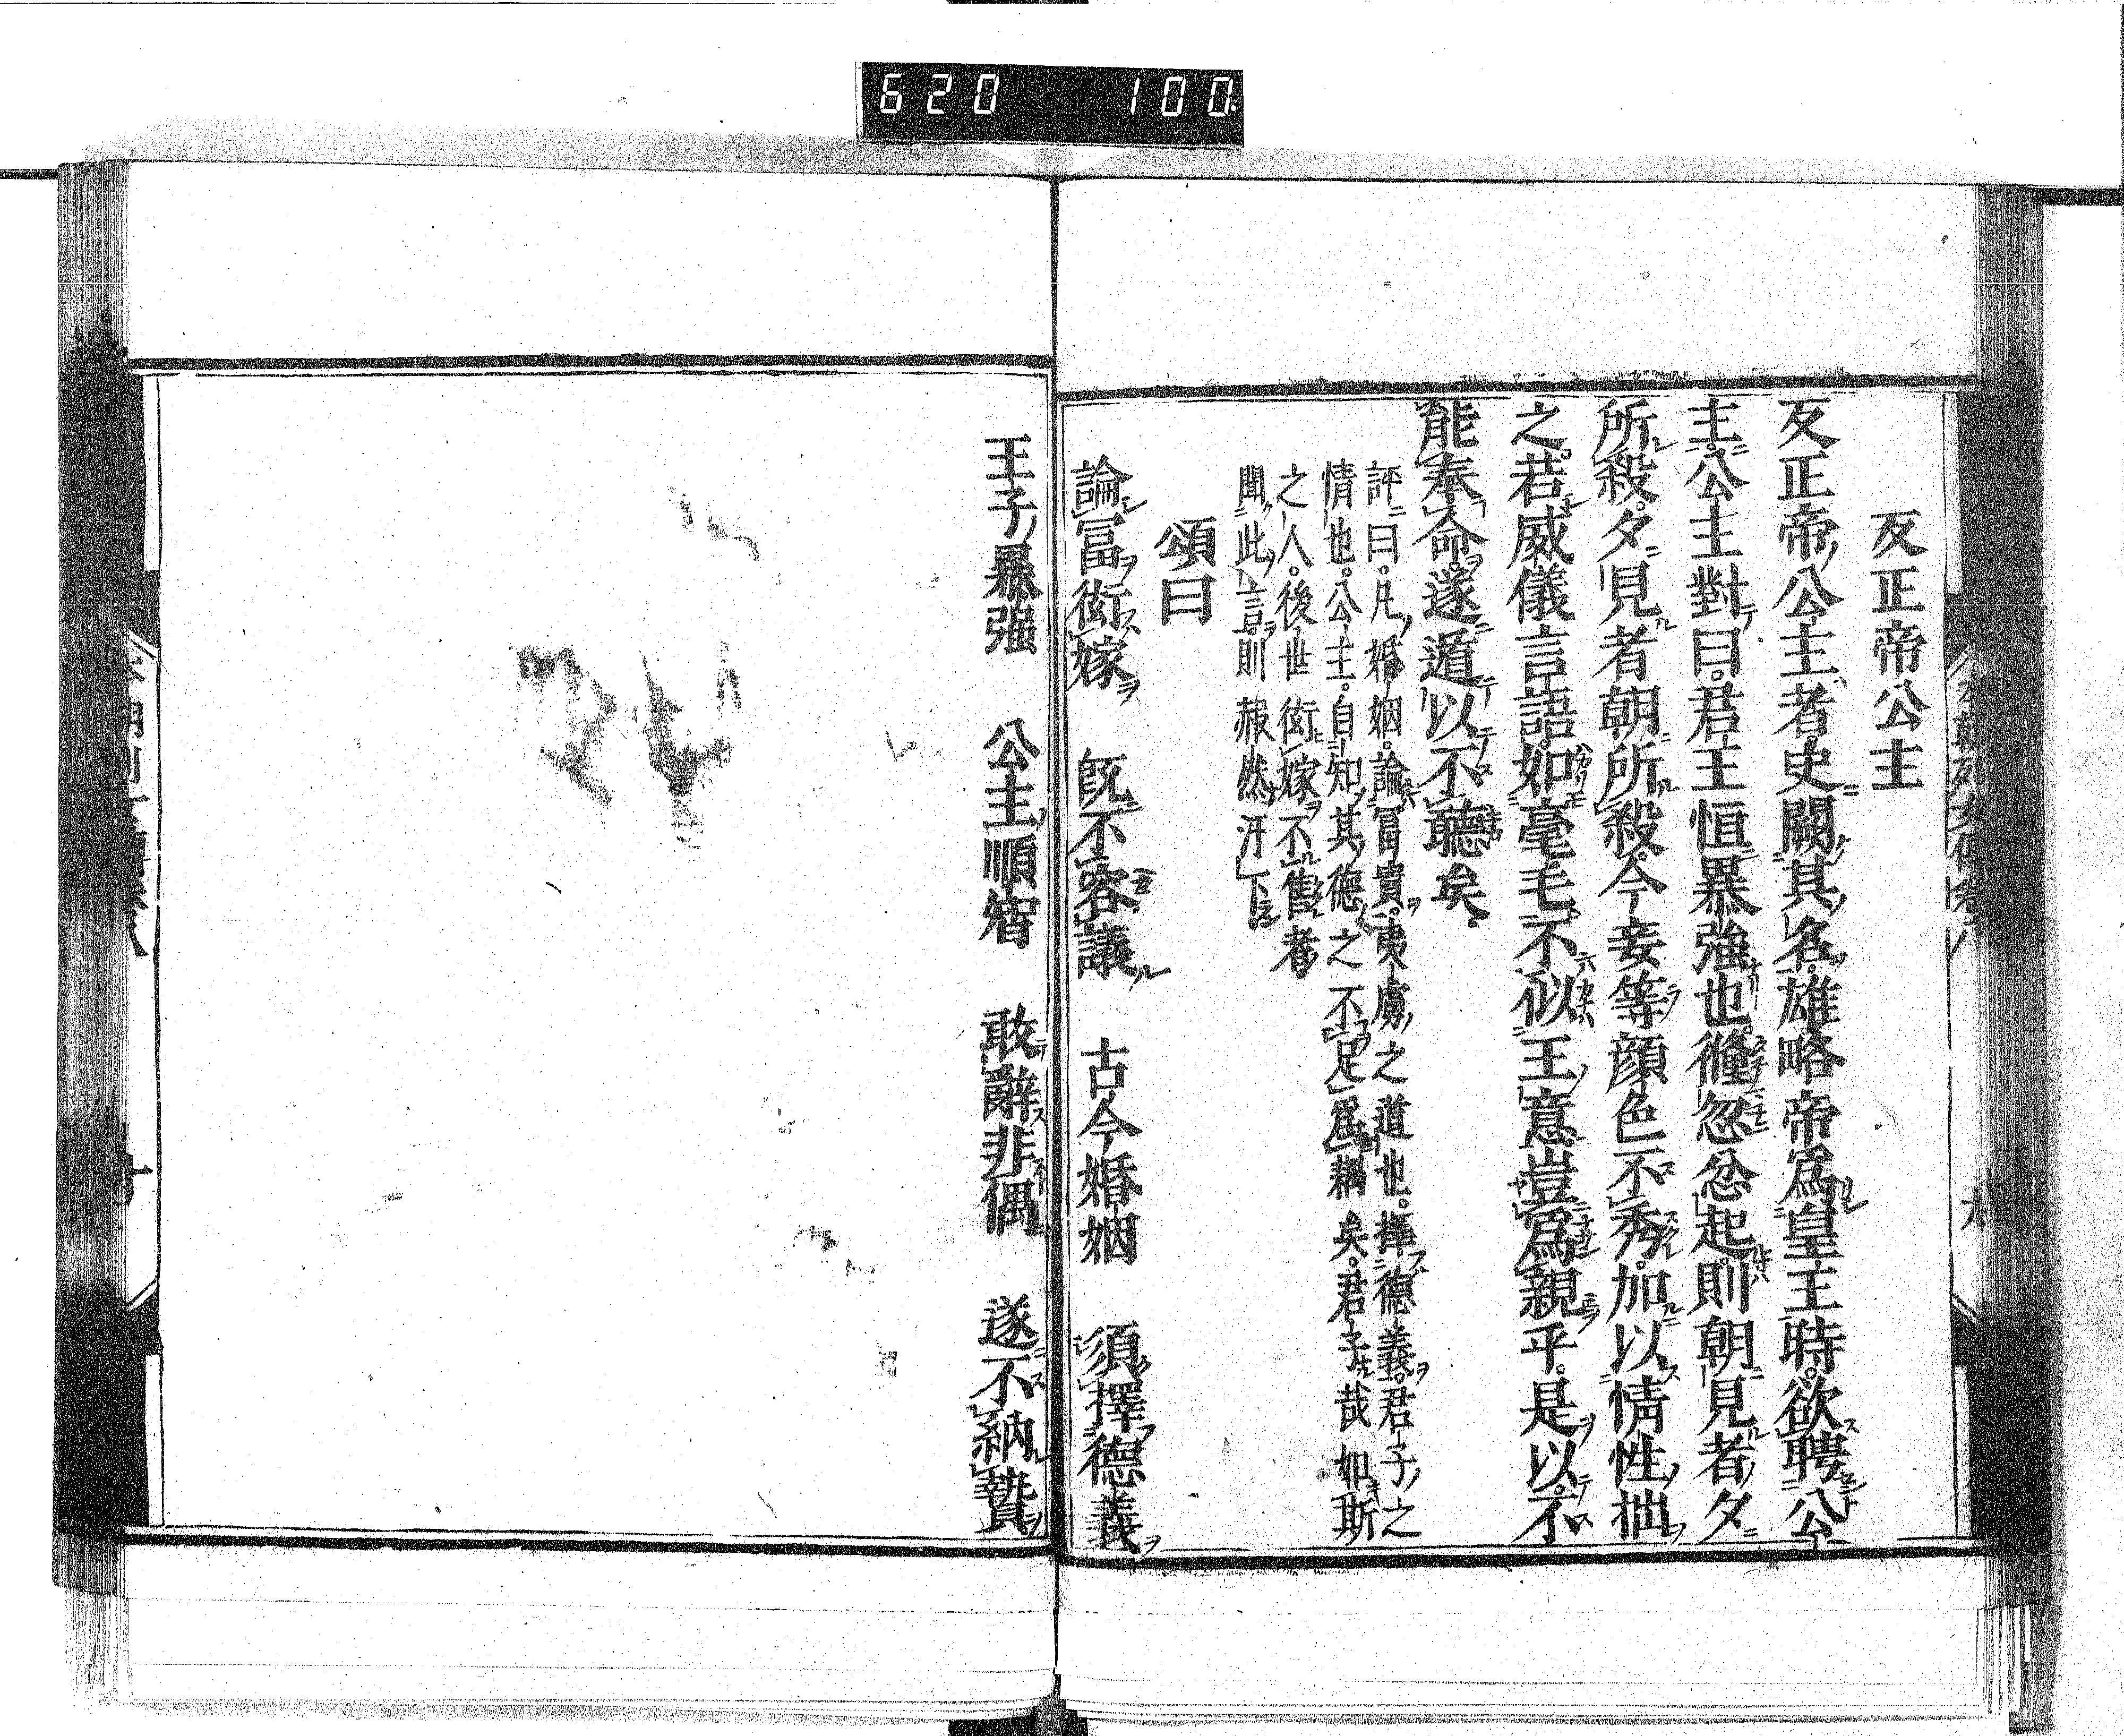 620 100
反正帝公主
反正帝公主者史闕其名雄略帝爲皇王時。欲聘公
主。公主對曰。君王恒暴強也。儵忽忿起。則朝見者夕
所殺。夕見者朝所殺。今妾等顔色不秀。加以情性拙
之。若威儀言語。如毫毛不似王意。豈爲親乎。是以不
能奉命。遂遁以不聽矣。
評曰。凡婚姻。論冨貴。夷虜之道也。擇德義。君子之
情也。公主。自知其德之不足爲耦矣。君子哉如斯
之人。後世衒嫁不售者。
聞此言則赧然汗下。
頌曰
論冨衒嫁 旣不容議 古今婚姻 須擇德義
王子暴强 公主順窘 敢辭非偶 遂不納贄